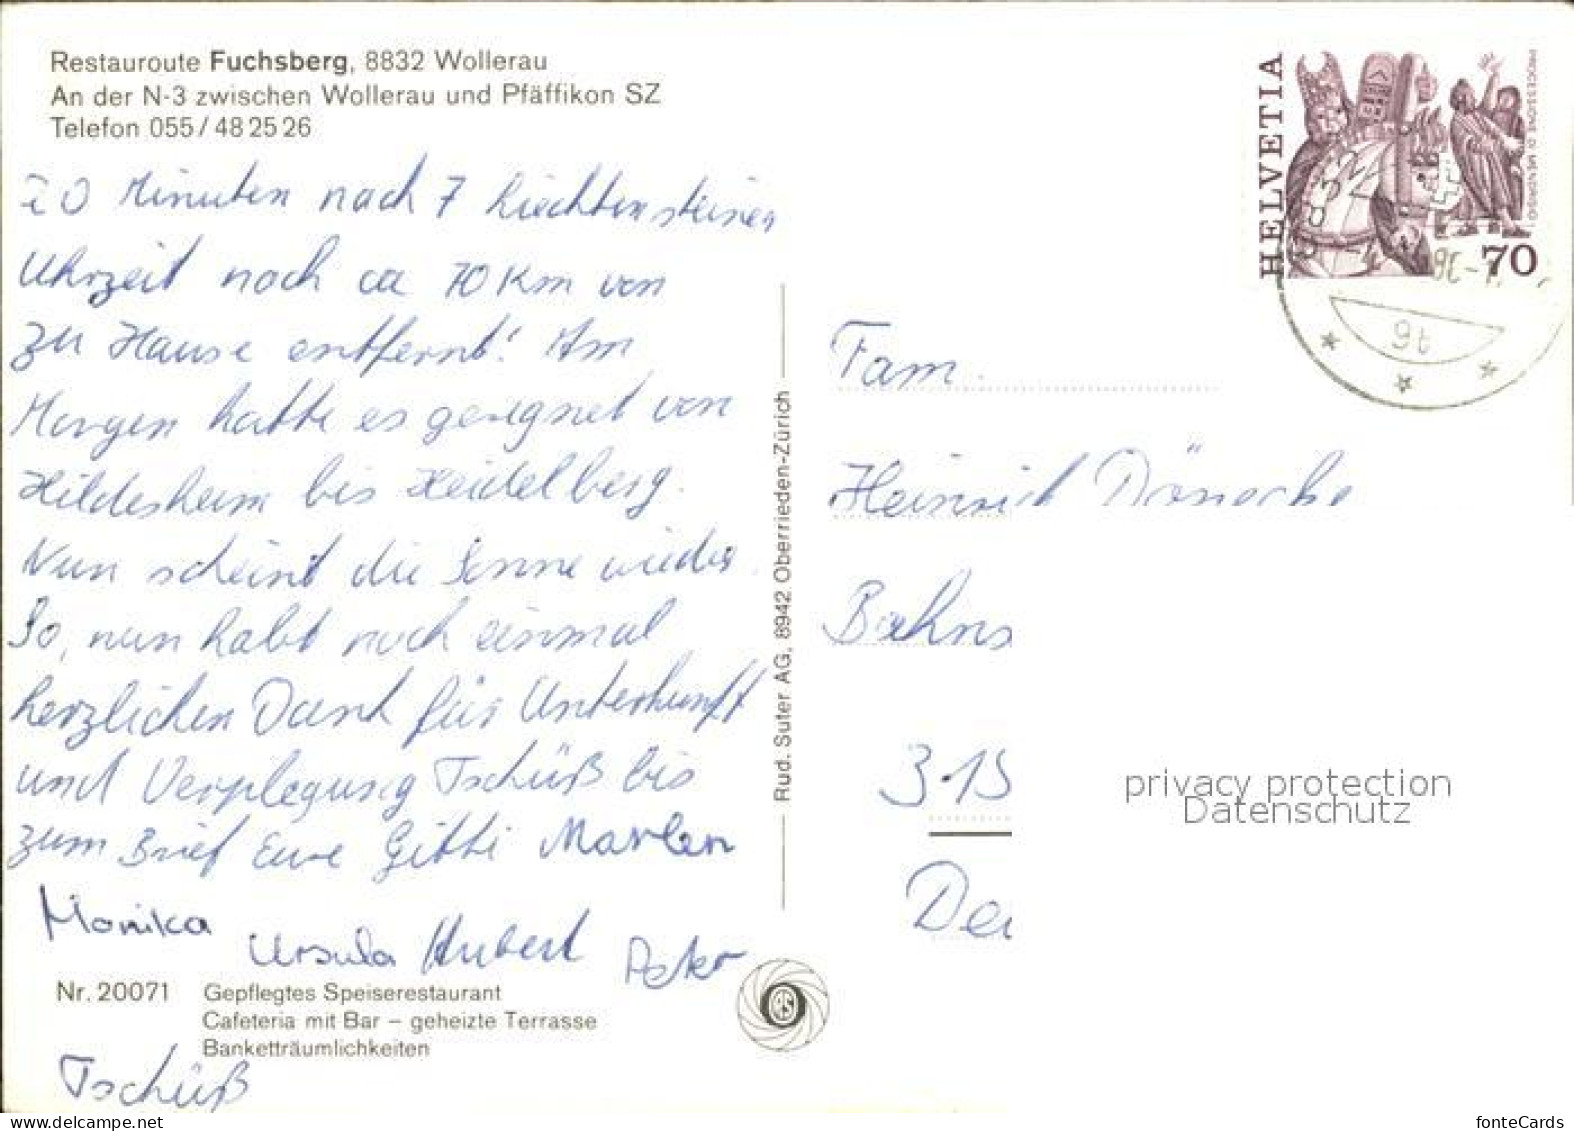 Restauroute Fuchsberg, 8832 Wollerau
An der N-3 zwischen Wollerau und Pfäffikon SZ
Telefon 055/48 25 26
20 Minuten nach 7 Liechtensteiner
Uhrzeit noch ca 70 Km von
zu Hause entfernt! Am
Morgen hatte es geregnet von
Hildesheim bis Heidelberg.
Nun scheint die Sonne wieder.
So, nun habt noch einmal
herzlichen Dank für Unterkunft
und Verplegung Tschüß bis
zum Brief Eure Gitti Marlen
Monika
Ursula Hubert Peter
Nr. 20071 Gepflegtes Speiserestaurant
Cafeteria mit Bar – geheizte Terrasse
Banketträumlichkeiten
Tschüß
Rud. Suter AG, 8942 Oberrieden-Zürich
HELVETIA
PROCESSIONE DI MENDRISIO
70
Fam.
Heinrich
Bahns
3.15
Deu
privacy protection
Datenschutz
fonteCards